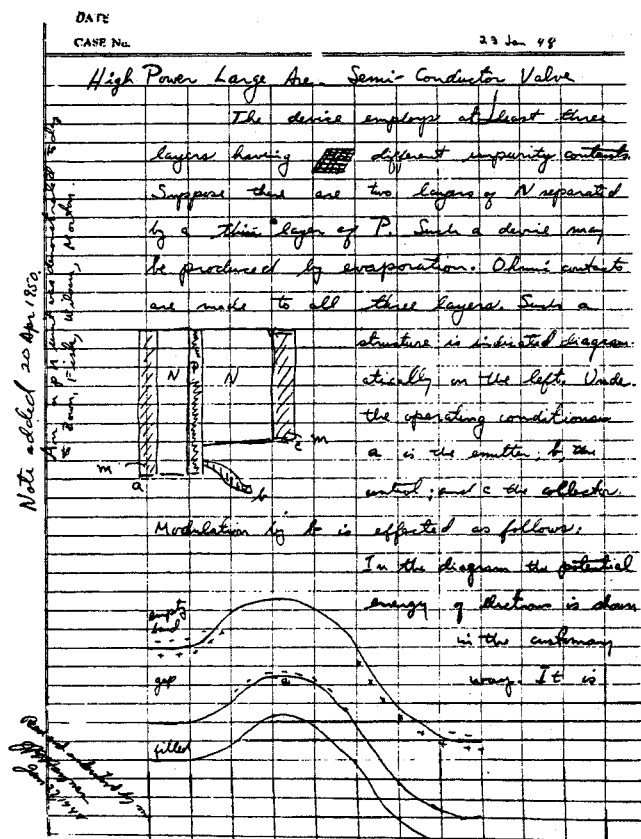 DATE
CASE No. 23 Jan 48
High Power Large Area Semi-Conductor Valve
The device employs at least three
layers having different impurity contents.
Suppose there are two layers of N separated
by a thin layer of P. Such a device may
be produced by evaporation. Ohmic contacts
are made to all three layers. Such a
structure is indicated diagram-
atically on the left. Under
the operating conditions
a is the emitter, b, the
control; and c the collector.
N P N
m
a
b
c
m
Modulation by b is effected as follows:
In the diagram the potential
energy of electrons is shown
in the customary
way. It is
empty
band
gap
filled
Note added 20 Apr 1950.
An n p n unit was demonstrated today
to Bown, Fisk, Wilson, Morton.
Read and understood by me
Jan 27 1948